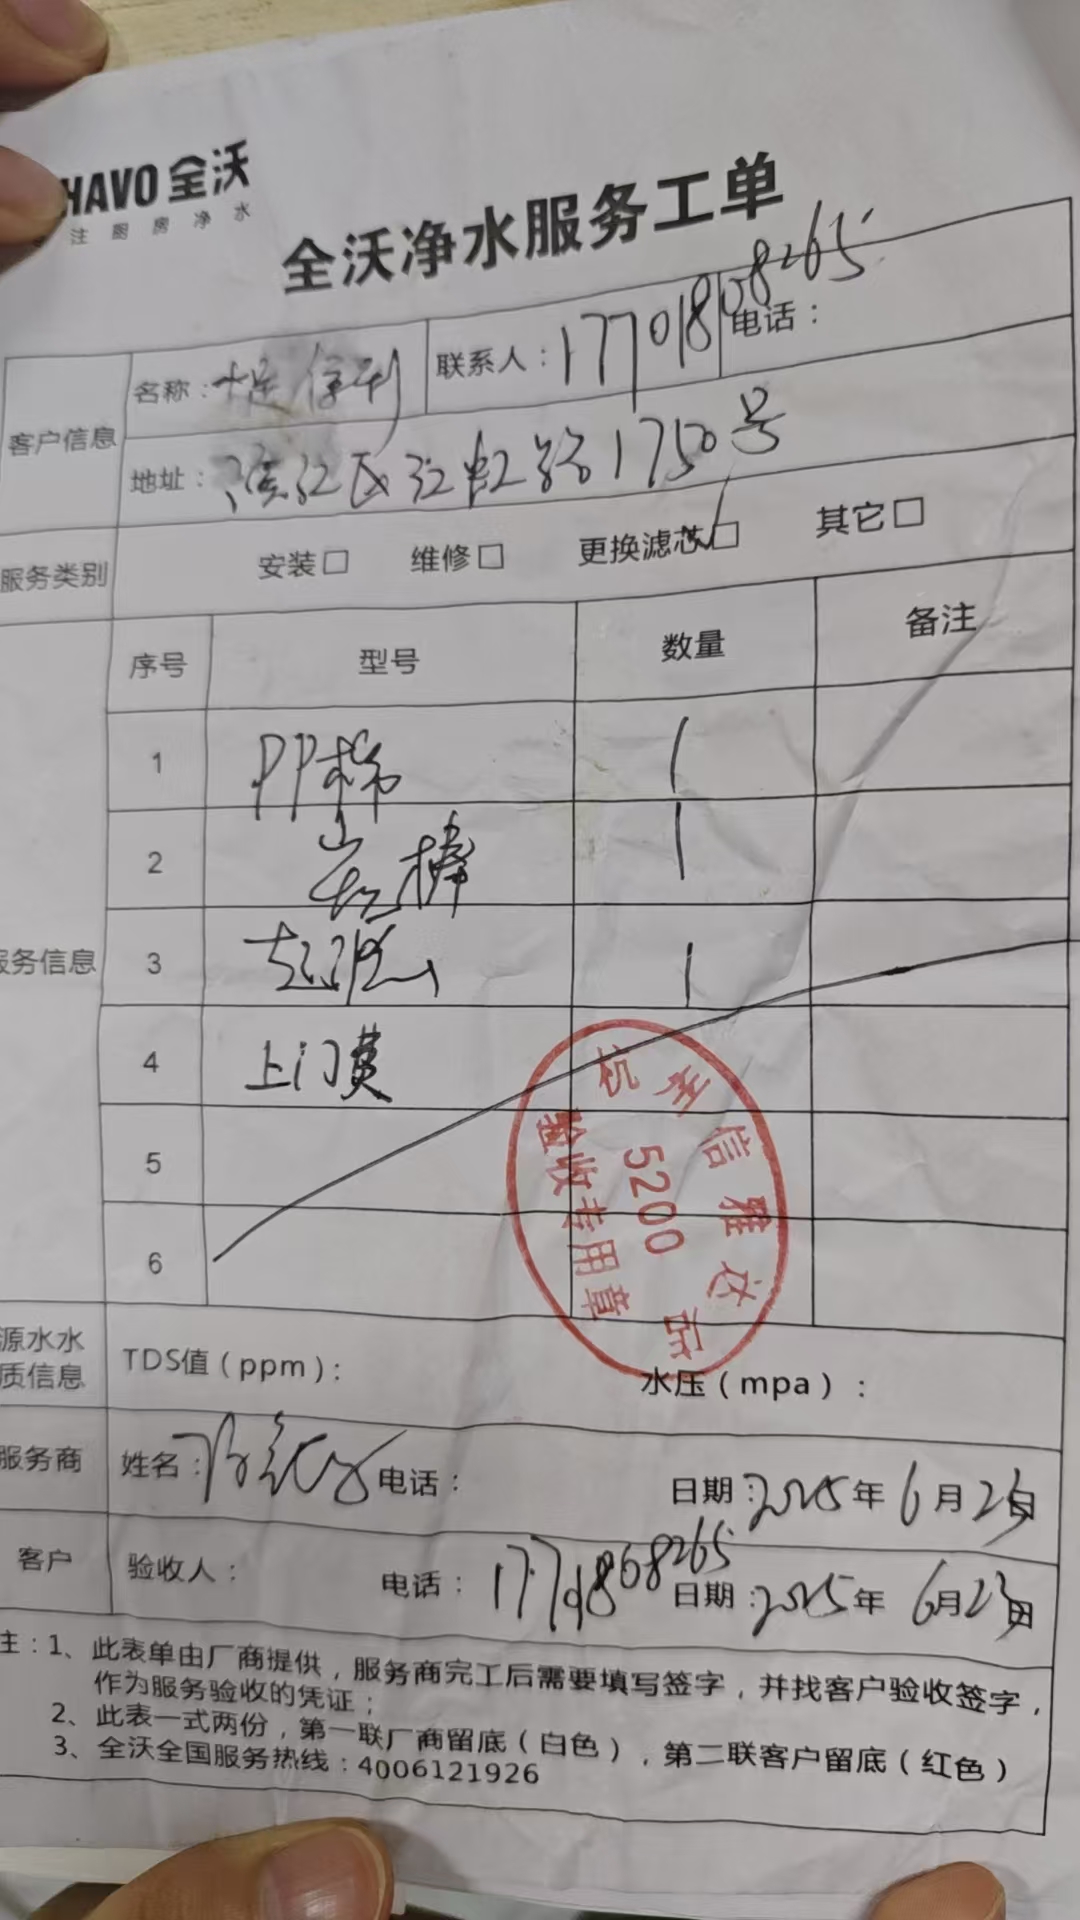 HAVO 全沃
注厨房净水
全沃净水服务工单
客户信息
名称：
联系人：17701808265
电话：
地址：滨江区江虹路1750号
服务类别
安装□ 维修□ 更换滤芯□ 其它□
服务信息
序号 型号 数量 备注
1 PP棉 1
2 炭棒 1
3 1
4 上门费
5
6
杭州信雅达
5200
验收专用章
源水水质信息
TDS值（ppm）：
水压（mpa）：
服务商
姓名：
电话：
日期：2025年6月23日
客户
验收人：
电话：17701868265
日期：2025年6月23日
注：1、此表单由厂商提供，服务商完工后需要填写签字，并找客户验收签字，
作为服务验收的凭证；
2、此表一式两份，第一联厂商留底（白色），第二联客户留底（红色）
3、全沃全国服务热线：4006121926